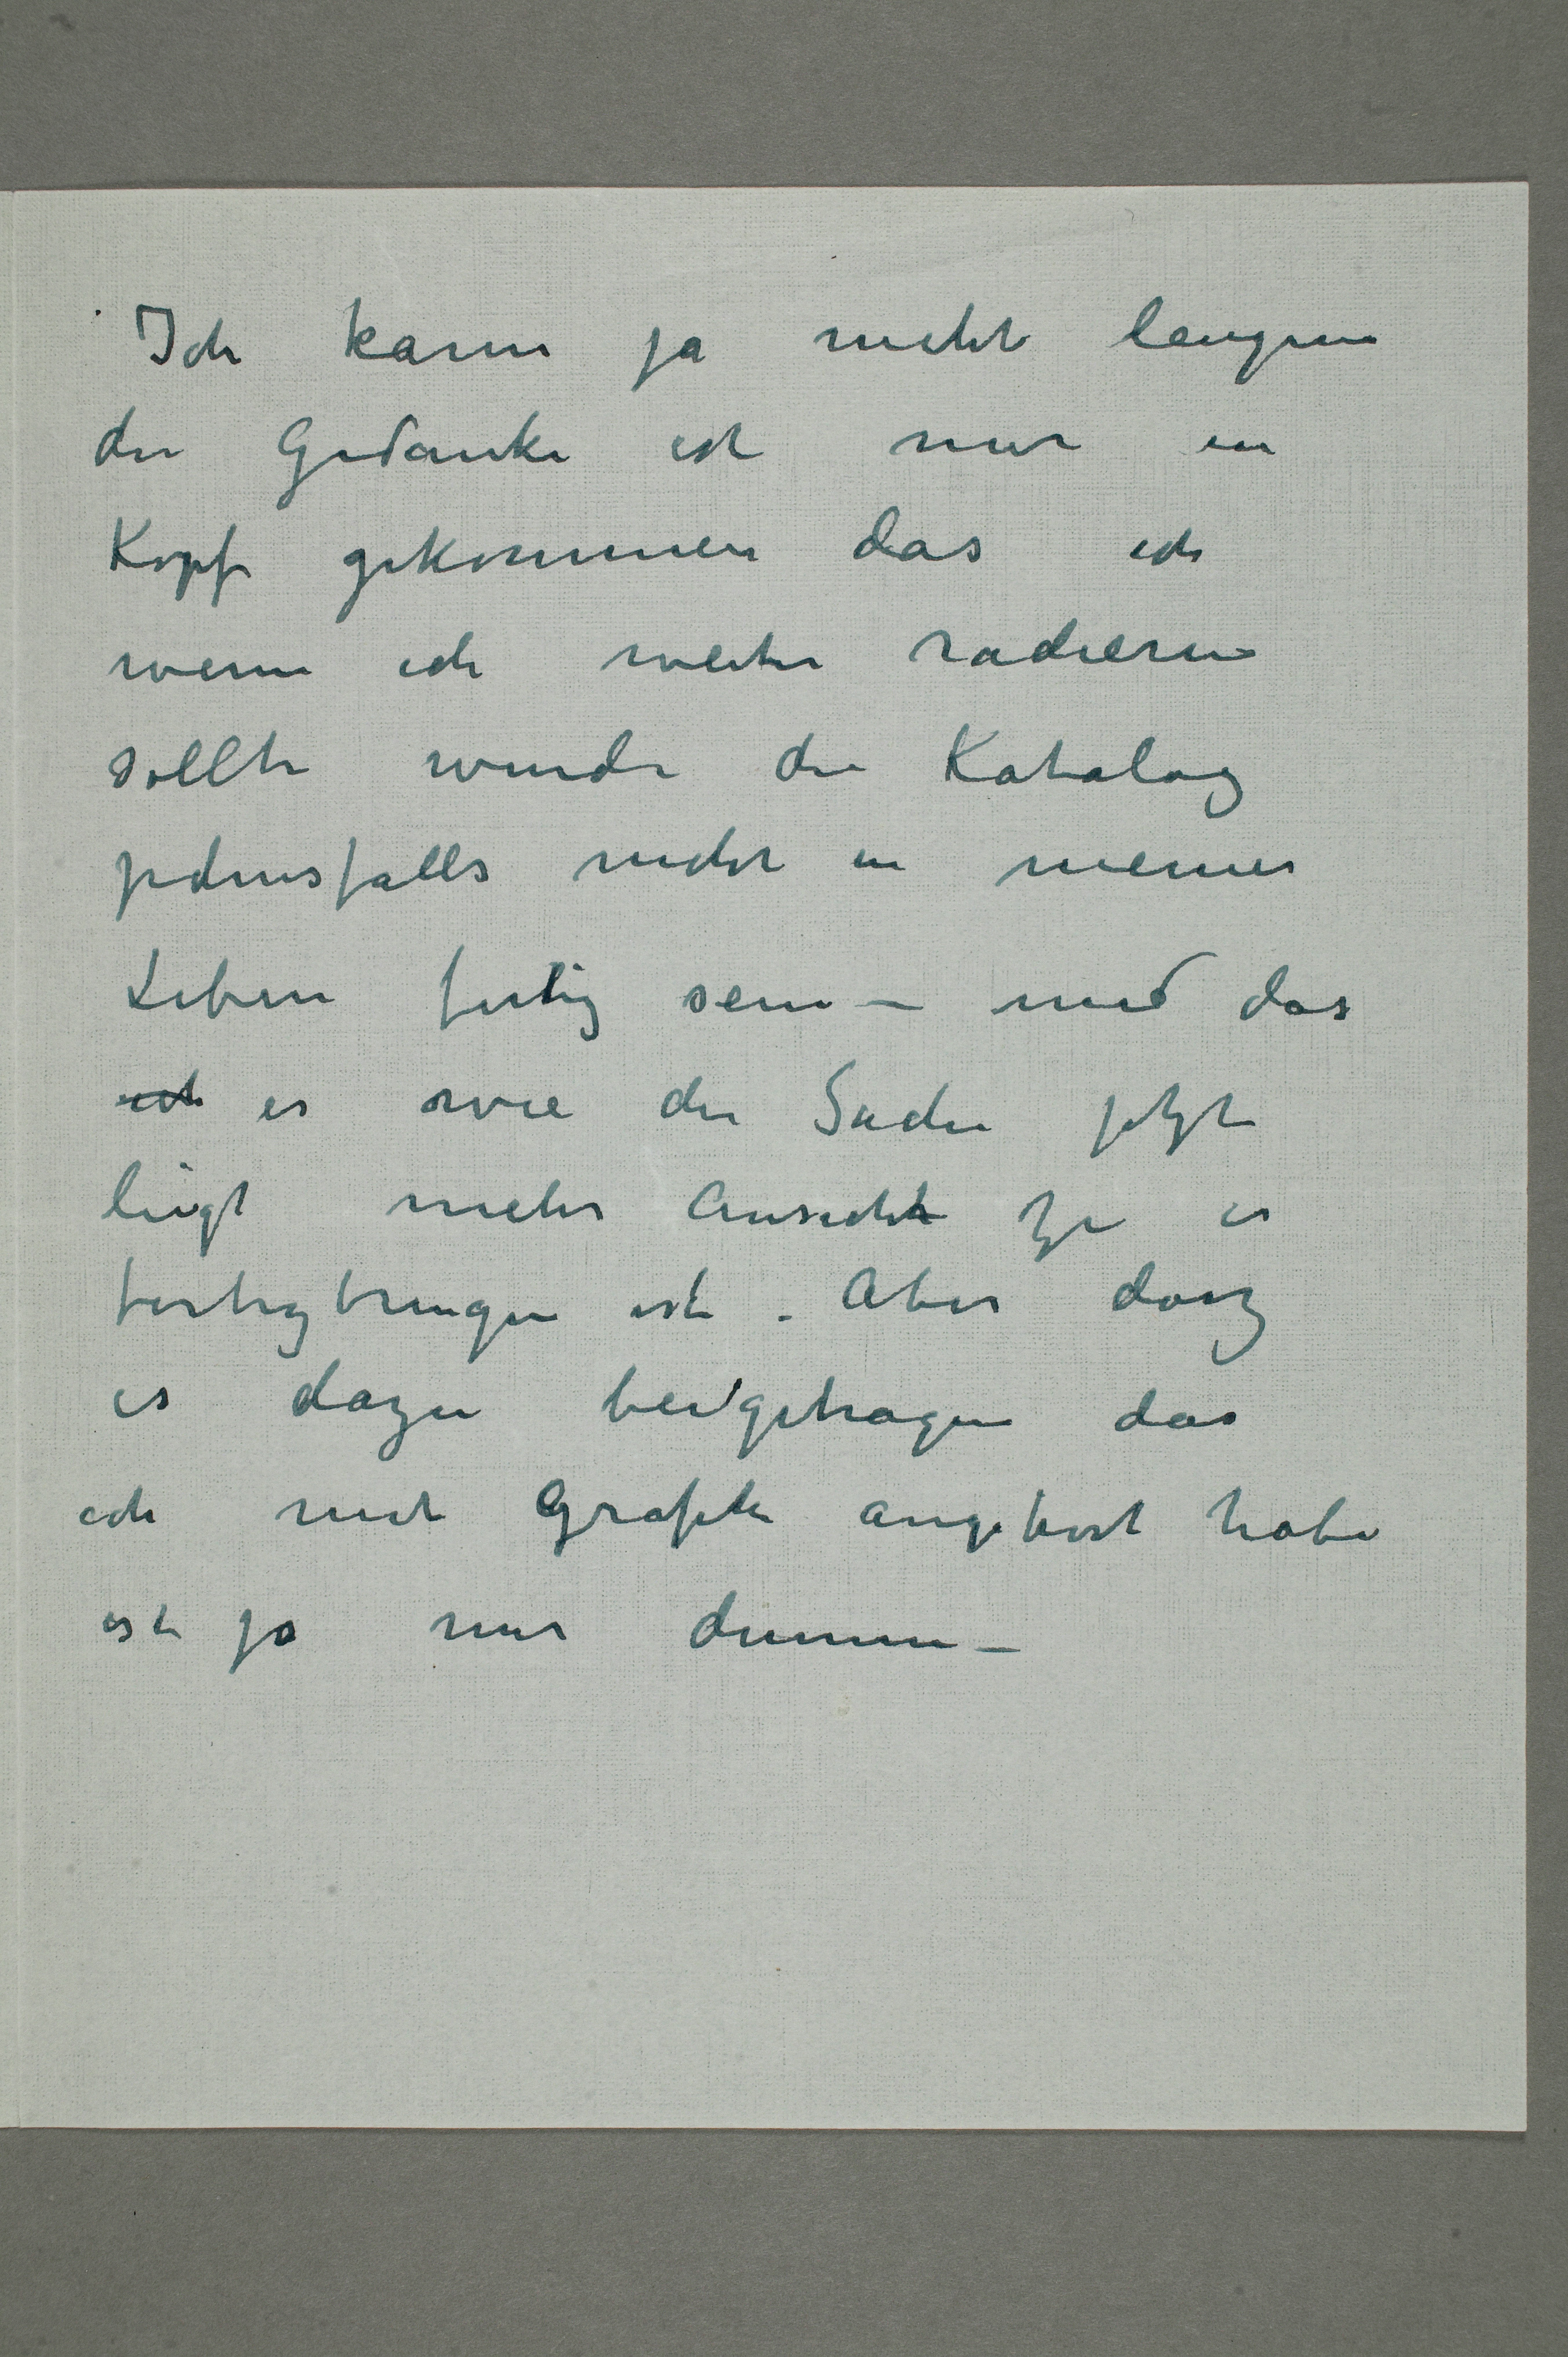 Ich kann ja nicht leugnen
der Gedanke ist mir in
Kopf gekommen das ich
wenn ich weiter radieren
sollte wurde der Katalog
jedensfalls nicht in meiner
Leben fertig sein – und das
ich es wie die Sache jetzt
liegt mehr Aussicht zu es
fertigbringen ist. Aber das
es dazu beigetragen das
ich mit Grafik angehört habe
ist ja nur dumm –